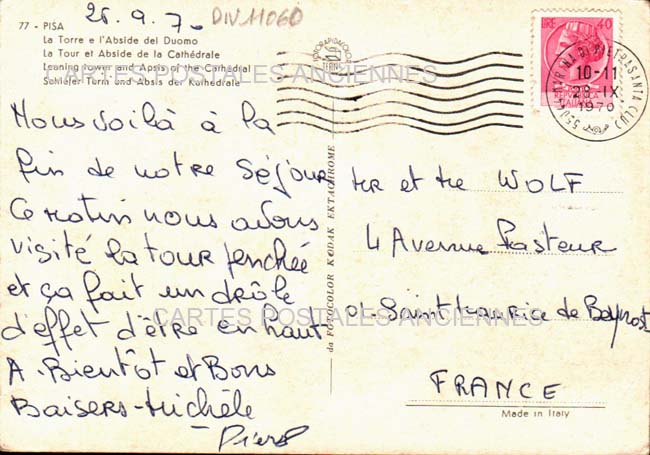 28.9.70
DIV11060
77 - PISA
La Torre e l'Abside del Duomo
La Tour et Abside de la Cathédrale
Leaning tower and Apsis of the Cathedral
Schiefer Turm und Absis der Kathedrale
CARTES POSTALES ANCIENNES
Nous voilà à la
fin de notre séjour
Ce matin nous avons
visité la tour penchée
et ça fait un drôle
d'effet d'être en haut
A Bientôt et Bons
Baisers - Michèle
Pierre
da FOTOCOLOR KODAK EKTACHROME
40
MARINA DI PIETRASANTA (LU)
10-11
28.IX
1970
Mr et Me WOLF
4 Avenue Pasteur
01-Saint Maurice de Beynost
FRANCE
Made in Italy
CARTES POSTALES ANCIENNES